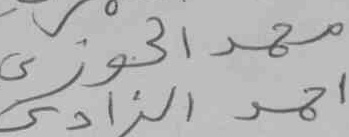 محمد الحوزى
احمد الزادى